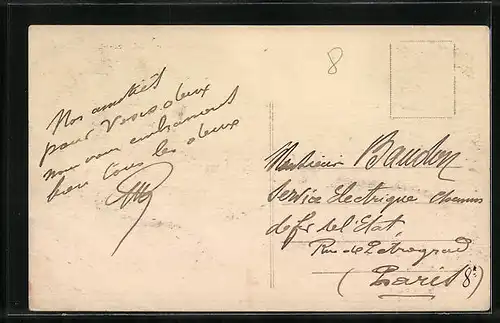 8
Nos amitiés
pour Vous deux
nous vous embrassons
bien tous les deux
Monsieur Baudon
Service Electrique Chemins
de fer de l'Etat
Rue de Petrograd
(Paris 8e